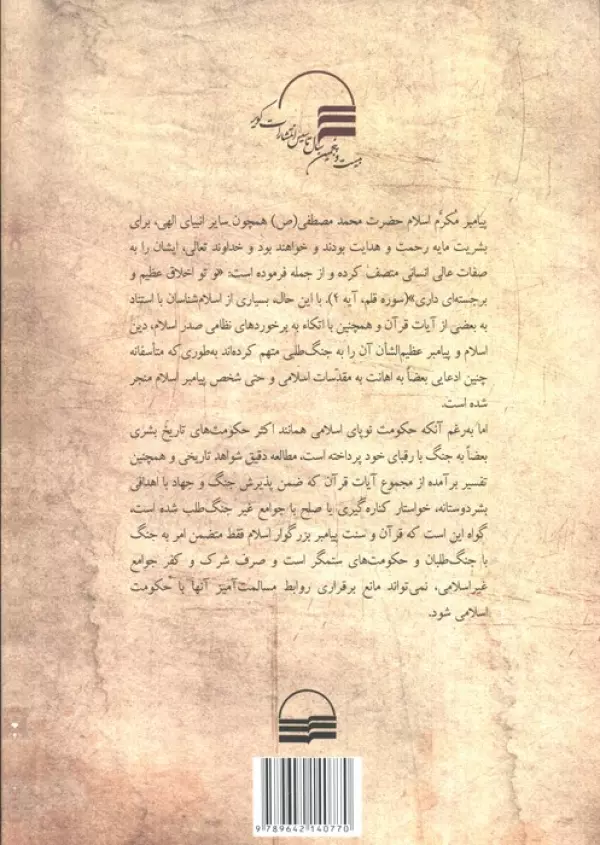 بیست و پنجمین سال تأسیس انتشارات کویر
پیامبر مُکرَّم اسلام حضرت محمد مصطفی(ص) همچون سایر انبیای الهی، برای
بشریت مایه رحمت و هدایت بودند و خواهند بود و خداوند تعالی، ایشان را به
صفات عالی انسانی متصف کرده و از جمله فرموده است: «و تو اخلاق عظیم و
برجسته‌ای داری»(سوره قلم، آیه ۴). با این حال، بسیاری از اسلام‌شناسان با استناد
به بعضی از آیات قرآن و همچنین با اتکاء به برخوردهای نظامی صدر اسلام، دین
اسلام و پیامبر عظیم‌الشأن آن را به جنگ‌طلبی متهم کرده‌اند به‌طوری‌که متأسفانه
چنین ادعایی بعضاً به اهانت به مقدّسات اسلامی و حتی شخص پیامبر اسلام منجر
شده است.
اما به‌رغم آنکه حکومت نوپای اسلامی همانند اکثر حکومت‌های تاریخ بشری
بعضاً به جنگ با رقبای خود پرداخته است، مطالعه دقیق شواهد تاریخی و همچنین
تفسیر برآمده از مجموع آیات قرآن که ضمن پذیرش جنگ و جهاد با اهدافی
بشردوستانه، خواستار کناره‌گیری یا صلح با جوامع غیر جنگ‌طلب شده است،
گواه این است که قرآن و سنت پیامبر بزرگوار اسلام فقط متضمن امر به جنگ
با جنگ‌طلبان و حکومت‌های ستمگر است و صرف شرک و کفر جوامع
غیراسلامی، نمی‌تواند مانع برقراری روابط مسالمت‌آمیز آنها با حکومت
اسلامی شود.
9 789642 140770